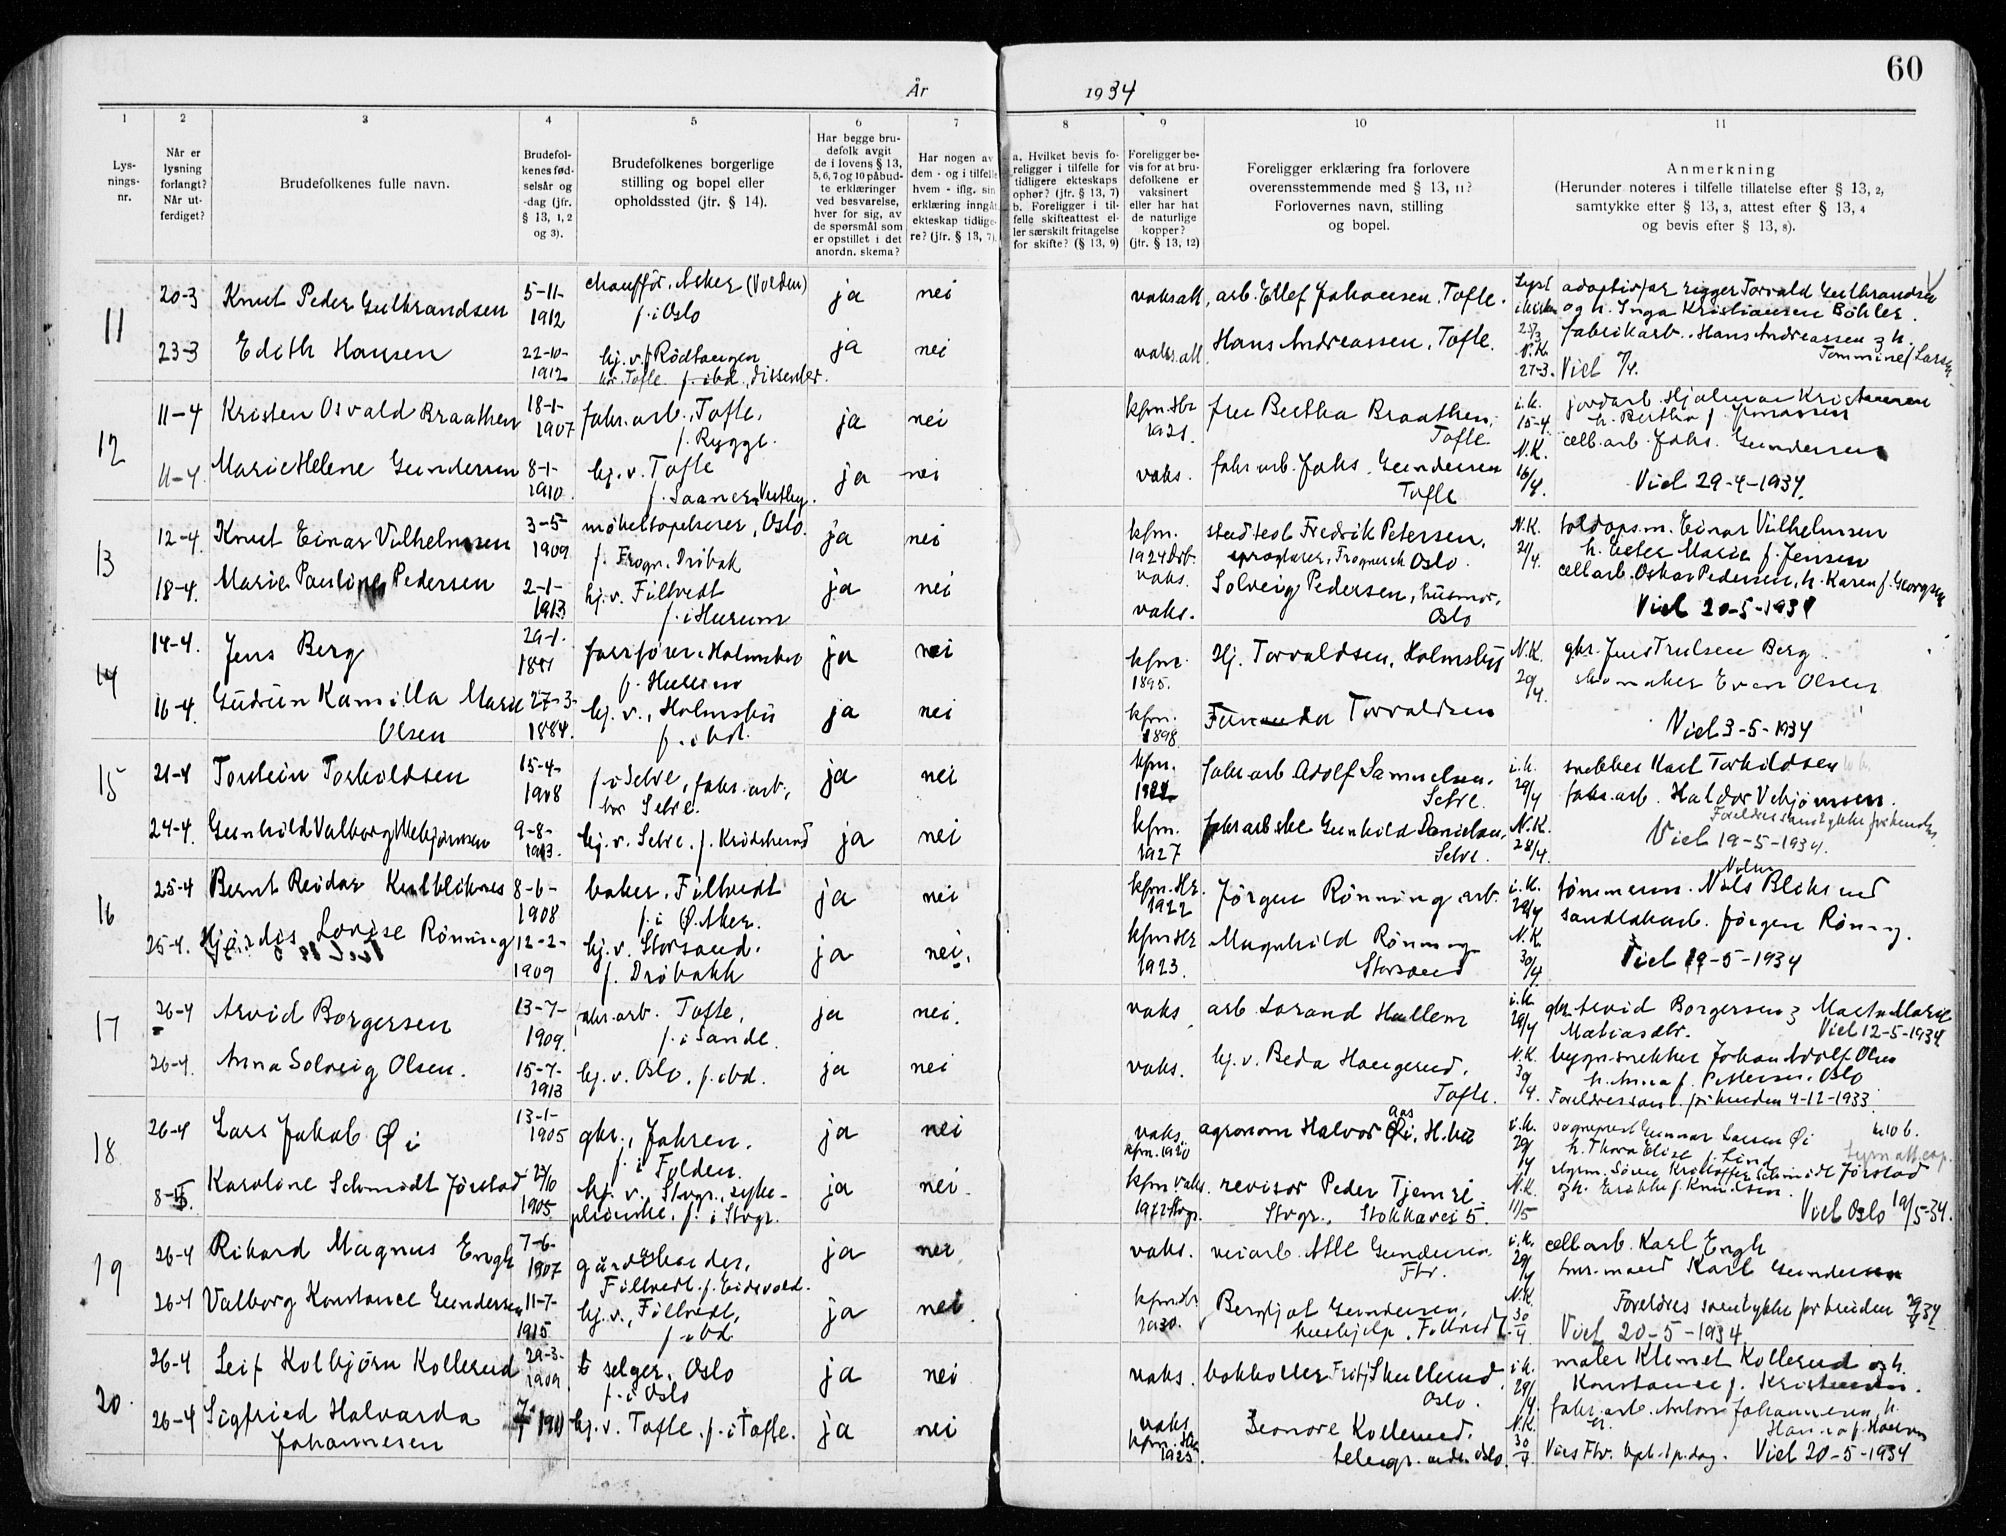 60
År 1934
1 2 3 4 5 6 7 8 9 10 11
Lys-
nings-
nr.
Når er
lysning
forlangt?
Når ut-
ferdiget?
Brudefolkenes fulle navn.
Brudefol-
kenes fød-
selsår og
-dag (jfr.
§ 13, 1, 2
og 3).
Brudefolkenes borgerlige
stilling og bopel eller
opholdssted (jfr. § 14).
Har begge bru-
defolk avgit
de i lovens § 13,
5, 6, 7 og 10 påbud-
te erklæringer
ved besvarelse,
hver for sig, av
de spørsmål som
er opstillet i det
anordn. skema?
Har nogen av
dem - og i tilfelle
hvem - iflg. sin
erklæring inngåt
ekteskap tidlige-
re? (jfr. § 13, 7).
a. Hvilket bevis fo-
religger i tilfelle for
tidligere ekteskaps
ophør? (jfr. § 13, 7)
b. Foreligger i til-
felle skifteattest el-
ler særskilt fritagelse
for skifte? (§ 13, 9)
Foreligger be-
vis for at bru-
defolkene er
vaksinert
eller har hat
de naturlige
kopper?
(jfr. § 13, 12)
Foreligger erklæring fra forlovere
overensstemmende med § 13, 11?
Forlovernes navn, stilling
og bopel.
Anmerkning
(Herunder noteres i tilfelle tillatelse efter § 13, 2,
samtykke efter § 13, 3, attest efter § 13, 4
og bevis efter § 13, 8).
11
20-3 Knut Peder Gulbrandsen 5-11-1912 chauffør, Aker (Volden) f. i Oslo ja nei vaksatt. arb. Ellef Johansen, Tofte. Lyst i kirken 25/3 adoptivfar rigger Torvald Gulbrandsen
og h. Inga Kristiansen Böhler.
23-3 Edith Hansen 22-10-1912 hj. v. f. Rødtangen bor Tofte f. ibd. dissenter. ja nei vaks.att. Hans Andreassen, Tofte. N.K. 27-3. fabrikarb. Hans Andreassen og h.
Tommine f. Larsen
Viet 7/4.
12
11-4 Kristen Osvald Braathen 18-1-1907 fabr. arb., Tofte, f. Rygge. ja nei kfm. Hr 1921. fru Bertha Braathen, Tofte i.k. 15-4. jordarb. Hjalmar Kristiansen
h. Bertha f. Jonassen
11-4 Marie Helene Gundersen 8-1-1910. hj. v. Tofte f. Saaner, Vestby. ja nei vaks. fabr. arb. Joh. Gundersen Tofte N.K. 16/4. cell. arb. Joh. Gundersen
Viet 29-4-1934.
13
12-4. Knut Einar Vilhelmsen 3-5-1909 møbeltapetserer, Oslo. f. Frogn, Drøbak ja nei kfm. 1924 Drb. vaks. Fredrik Petersen, Oslo. N.K. 21/4. toldops.m. Einar Vilhelmsen
h. Marie f. Jensen
18-4. Marie Pauline Pedersen 2-1-1913 hj. v. Filtvedt f. i Hurum ja nei vaks. Solveig Pedersen, husmor, Oslo cell arb. Oskar Pedersen, h. Karen f. Georgsen
Viet 20-5-1934
14
14-4. Jens Berg 29-1-1881 f. Hurum ja nei kfm. 1895. Hj. Torvaldsen, Holmsbu N.K. 20/4. gbr. Jens Trulsen Berg.
16-4. Gudrun Kamilla Marie Olsen 27-3-1884. hj. v., Holmsbu f. ibd. ja nei kfm. 1898. Torvaldsen skomaker Even Olsen
Viet 3-5-1934
15
21-4 Torstein Torkildsen 15-4-1908 f. i Setre, fabr. arb., bor Setre. ja nei kfm. fabr. arb. Adolf Samuelsen. Setre. i.k. 29/4 snekker Karl Torkildsen
24-4. Gunhild Valborg Vebjørnsen 9-8-1913. hj. v. Setre. f. Krödsherad ja nei kfm. 1927 fabr arbske Gunhild Danielsen, Setre. N.K. 28/4. fabr. arb. Haldor Vebjørnsen.
Foreldres samtykke for
Viet 19-5-1934.
16
25-4 Bernt Reidar 8-6-1908 baker, Filtvedt f. i Ø. Aker. ja nei kfm. Hr. 1922 Jørgen Rönning arb. i.k. 29/4 tømmerm. Nils Bliksrud
25-4. Hjørdis Lovise Rönning 12-2-1909 hj. v. Storsand. f. Drøbakk ja nei. kfm Hr 1923. Magnhild Rönning Storsand N.K. 30/4 sandtakarb. Jörgen Röning.
Viet 19-5-1934
17
26-4 Arvid Borgersen 13-7-1909. fabr. arb. Tofte, f. i Sande. ja nei. vaks arb. Hallem i.k. 29/4 gbr. Arvid Borgersen og Marta Marie
Viet 12-5-1934
26-4. Anna Solveig Olsen. 15-7-1913 hj. v. Oslo. f. ibd. ja nei vaks. hj. v. Beda Haugerud, Tofte. N.K. 30/4. bygn. snekker Johan Adolf Olsen
h. Anna f. Pettersen, Oslo
Foreldres samt. for bruden 4-12-1933.
18
26-4 Lars Jakob Øi 13-1-1905 gbr., f. i Folden. ja nei vaks. kfm. 1920 agronom Halvor Aas Øi, i.k. 29/4 sogneprest Gunnar Larsen Øi
h. Thora Elise f. Lind
8-5. Karoline Schmidt Jørstad 23/10 1905. hj. v., Stvgr., syke- pleierske, f. i Stvgr. ja nei. kfm vaks. Stvgr. revisor Peder Tjemsl Stvgr., Stokkavei 5. N.K. 11/5 Søren Kristoffer Schmidt Jørstad
og h. f. Knudsen.
Viet Oslo 19/5-34.
19
26-4 Rikard Magnus Engh 7-6-1907 gårdsarbeider, Filtvedt. f. Eidsvold. ja nei vaks. veiarb. Atle Gundersen Ftv. i.k. 29/4 cell arb. Karl Engh
26-4 Valborg Konstance Gundersen 11-7-1915 hj. v., Filtvedt, f. ibd ja nei. kfm Hr 1930. Bergljot Gundersen, hushjelp, Filtvedt. N.K. 30/4 Karl Gundersen
Foreldres samtykke for bruden 29/4 34
Viet 20-5-1934.
20.
26-4 Leif Kolbjørn Kollerud 29-3-1909 selger, Oslo f. i Oslo ja nei vaks. bokholder Skullerud, Oslo. i.k. 29/4. maler Klemet Kollerud og h.
Konstance f. Kristiansen.
26-4 Sigfried Halvarda Johannesen hj. v. Tofte. f. i Tofte. ja nei vaks kfm. 1925. Leonore Kollerud. Oslo. N.K. 30/4 fabr. arb. Anton Johannesen, h.
f. Hansen
Vies Ftv. kpl. 1 p. dag. Viet 20-5-1934